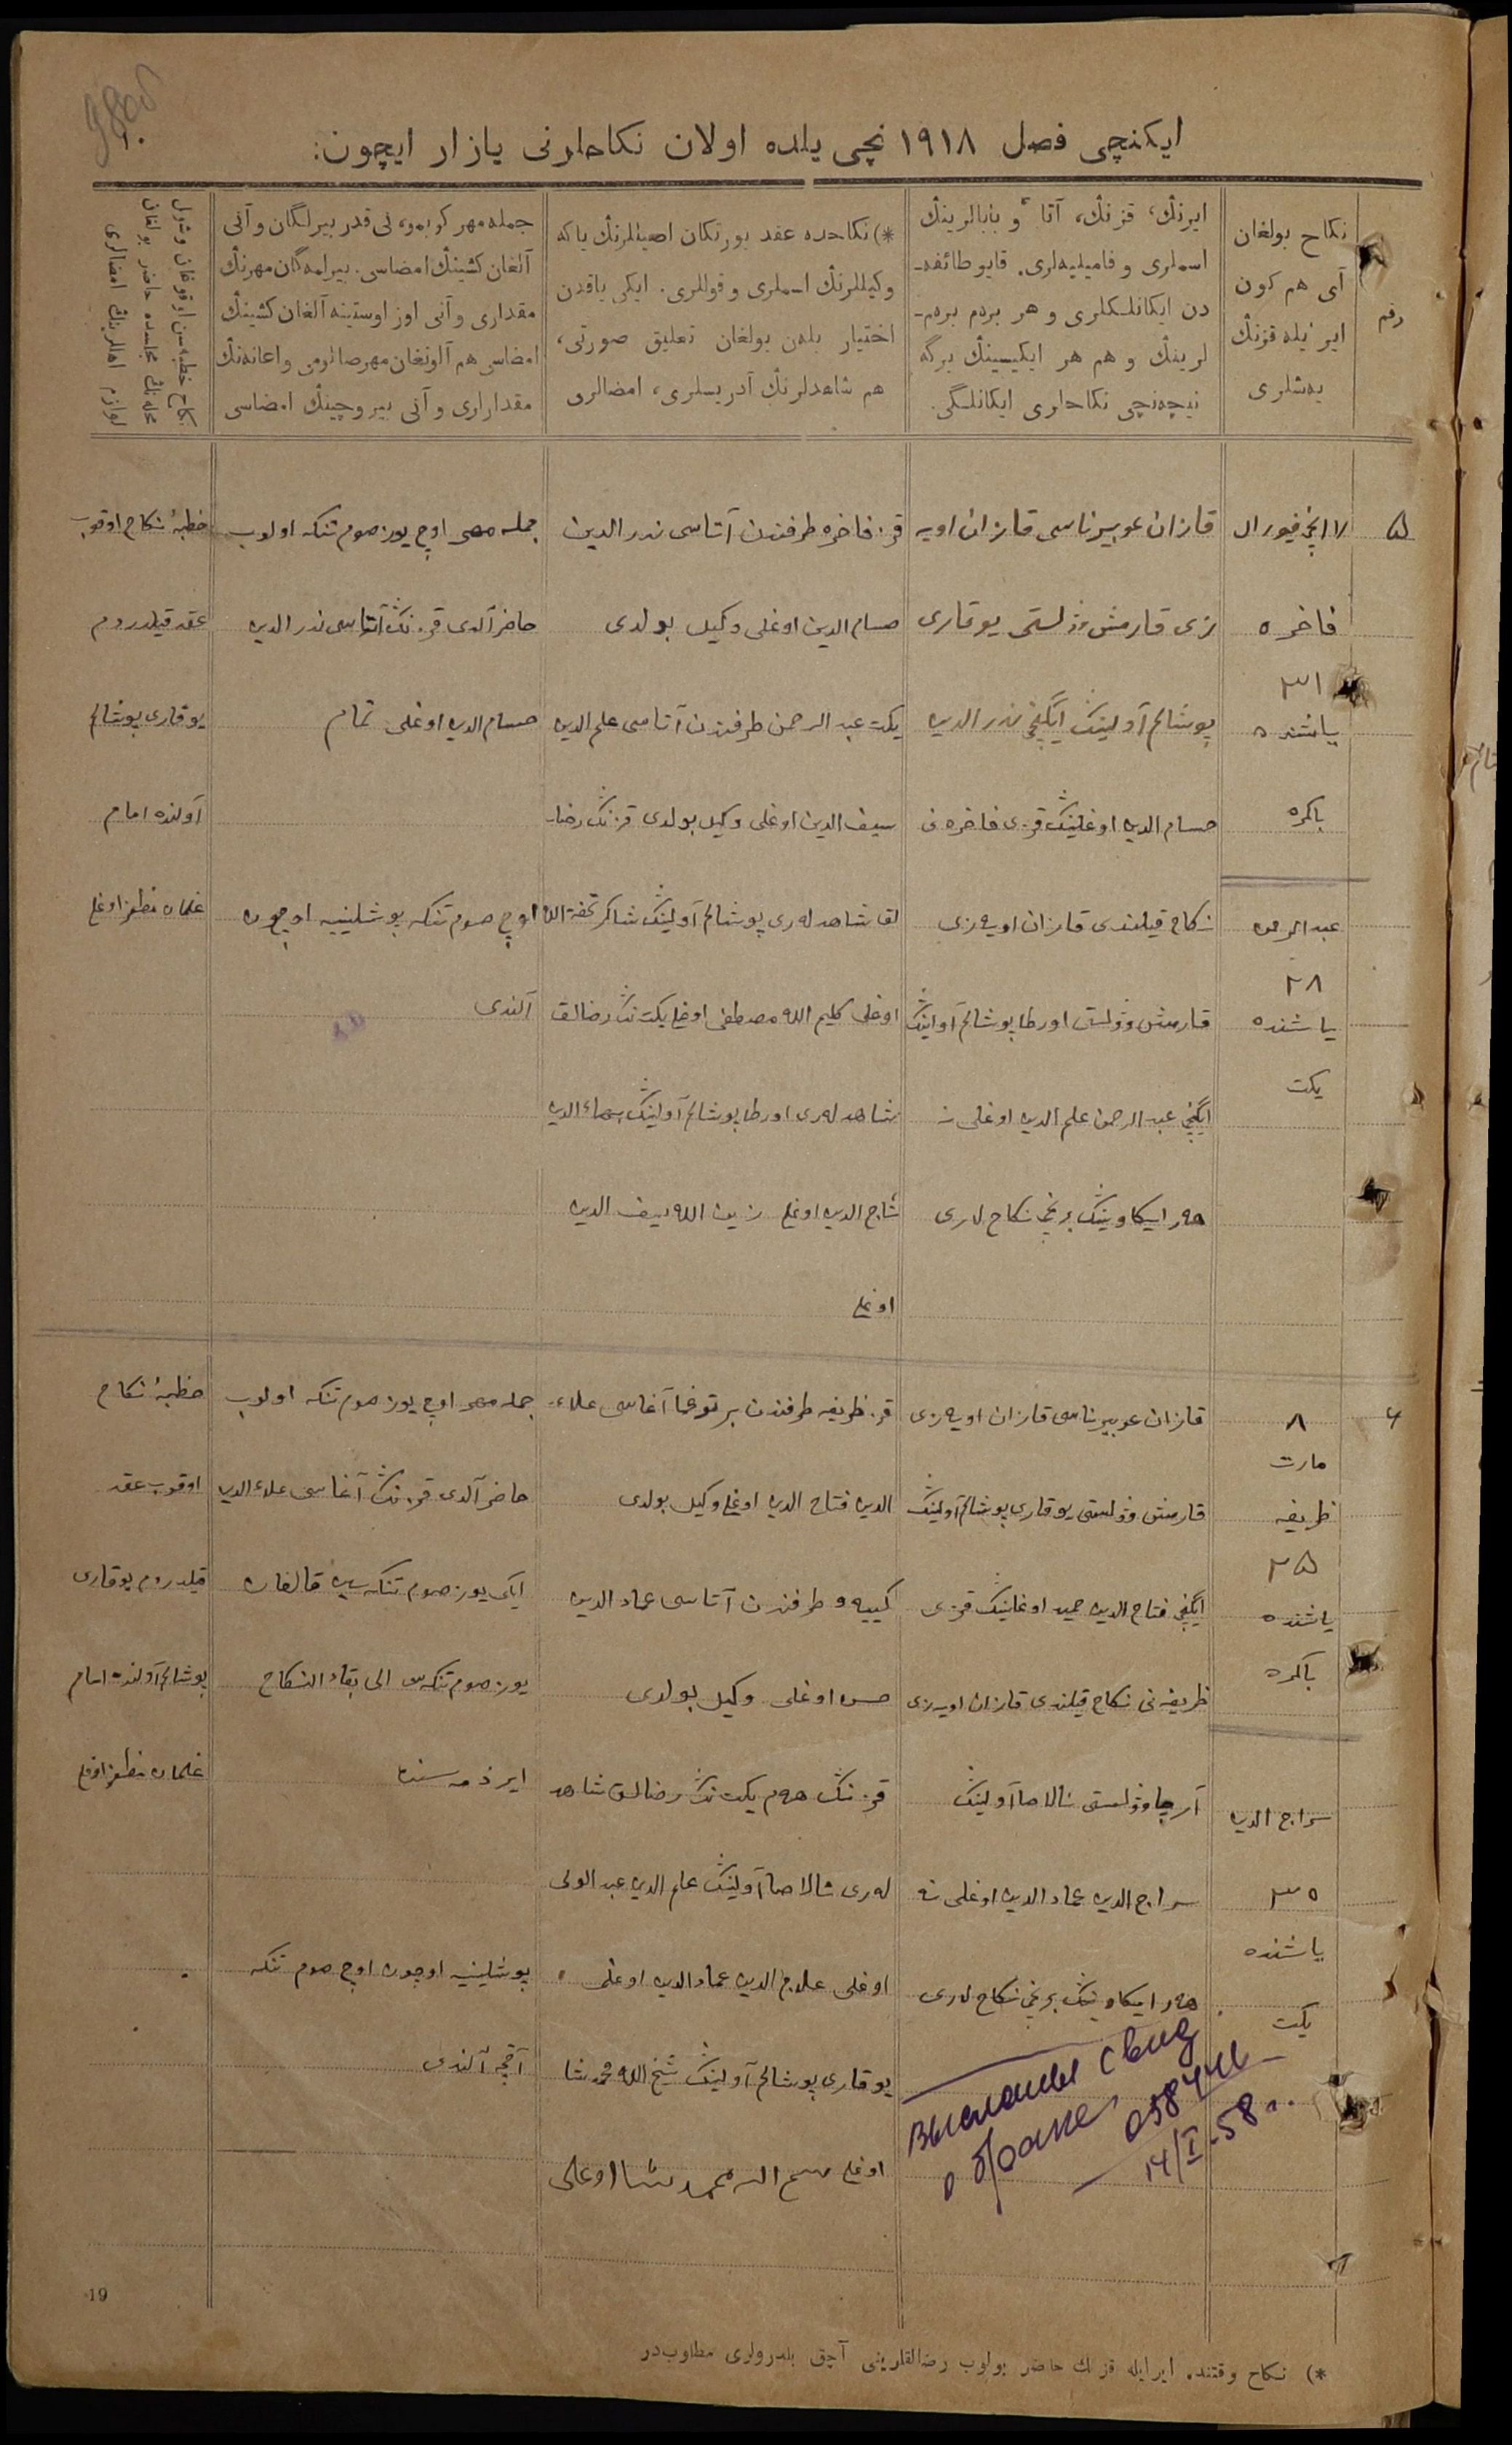 ایكنچی فصل ١٩١٨ نچی یلده اولان نكاحلرنی یازار ایچون:
رقم
نكاح بولغان
آی هم كون
ایر ئیله قزنڭ
یەشلری
ایرنڭ، قزنڭ، آتا و بابالرینڭ
اسملری و فامیلیەلری. قایو طائفه‌ـ
دن ایكانلكلری و هر بردم بردم‌ـ
لرینڭ و هم هر ایكیسینڭ برگه
نیچەنچی نكاحلری ایكانلگی.
*) نكاحده عقد یورتكان اصیللرنڭ یا كه
وكیللرنڭ اسملری و قوللری. ایكی یاقدن
اختیار بلەن بولغان تعلیق صورتی،
هم شاهدلرنڭ آدریسلری، امضالری
جمله مهر كوبمو، نی قدر بیرلگان و آنی
آلغان كشینڭ امضاسی. بیرلمەگان مهرنڭ
مقداری و آنی اوز اوستینه آلغان كشینڭ
امضاسی هم آلونغان مهر صالومی و اعانەنڭ
مقدارلری و آنی بیروچینڭ امضاسی
نكاح خطبەسن اوقوغان وشول
محلەنڭ مجلسده حاضر بولغان
لوازم اهالرینڭ امضالری
٥
١٧ نچی فیورال
فاخره
٣١
یاشنده
باكره
عبدالرحمن
٢٨
یاشنده
یكت
قازان غوبیرناسی قازان اویه
زی قارمش وۋلستی یوقاری
پوشالم آولینڭ ایگنچی بدرالدین
حسام الدین اوغلینڭ قزی فاخره نی
نكاح قیلندی قازان اویەزی
قارمش وۋلستی اورطا پوشالم آولینڭ
ایگنچی عبدالرحمن علم الدین اوغلی نه
هەر ایكاوینڭ برنچی نكاح لاری
قز فاخره طرفندن آتاسی بدرالدین
حسام الدین اوغلی وكیل بولدی
یكت عبدالرحمن طرفندن آتاسی علم الدین
سیف الدین اوغلی وكیل بولدی قزنڭ رضاـ
لق شاهدلەری پوشالم آولینڭ شاكر تحفة الله
اوغلی كلیم الله مصطفی اوغلی یكت نڭ رضالق
شاهدلەری اورطا پوشالم آولینڭ بهاءالدین
تاج الدین اوغلی زین الله سیف الدین
اوغلی
جمله مهر اوچ یوز صوم تنكه اولوب
حاضر آلدی قزنڭ آتاسی بدرالدین
حسام الدین اوغلی تمام
اوچ صوم تنكه پوشلینیه اوچون
آلندی
خطبهٔ نكاح اوقوب
عقد قیلدردم
یوقاری پوشالم
آولنده امام
غلمان مظفر اوغلی
٦
٨
مارت
ظریفه
٢٥
یاشنده
باكره
سراج الدین
٣٥
یاشنده
یكت
قازان غوبیرناسی قازان اویەزی
قارمش وۋلستی یوقاری پوشالم آولینڭ
ایگنچی فتاح الدین حمید اوغلینڭ قزی
ظریفه نی نكاح قیلندی قازان اویەزی
آرچا وۋلستی شالاصا آولینڭ
سراج الدین عماد الدین اوغلی نه
هەر ایكاوینڭ برنچی نكاح لاری
قز ظریفه طرفندن بر توغما آغاسی علاءـ
الدین فتاح الدین اوغلی وكیل بولدی
كییەو طرفندن آتاسی عماد الدین
حسن اوغلی وكیل بولدی
قزنڭ هەم یكت نڭ رضالق شاهد
لەری شالاصا آولینڭ علم الدین عبدالولی
اوغلی علاج الدین عماد الدین اوغلی
یوقاری پوشالم آولینڭ شیخ الله محمدشا
اوغلی شیخ الله محمدشا اوغلی
جمله مهر اوچ یوز صوم تنكه اولوب
حاضر آلدی قزنڭ آغاسی علاء الدین
ایكی یوز صوم تنكەسین قالغان
یوز صوم تنكەسی الی بقاء النكاح
ایر ذمەسنده
پوشلینیه اوچون اوچ صوم تنكه
آقچه آلندی
خطبهٔ نكاح
اوقوب عقد
قیلدردم یوقاری
پوشالم آولنده امام
غلمان مظفر اوغلی
выслано свид
о браке 058744
14/I-58 г.
19
*) نكاح وقتنده ایر ایله قزنڭ حاضر بولوب رضالقلرینی آچق بلدرولری مطلوب‌در